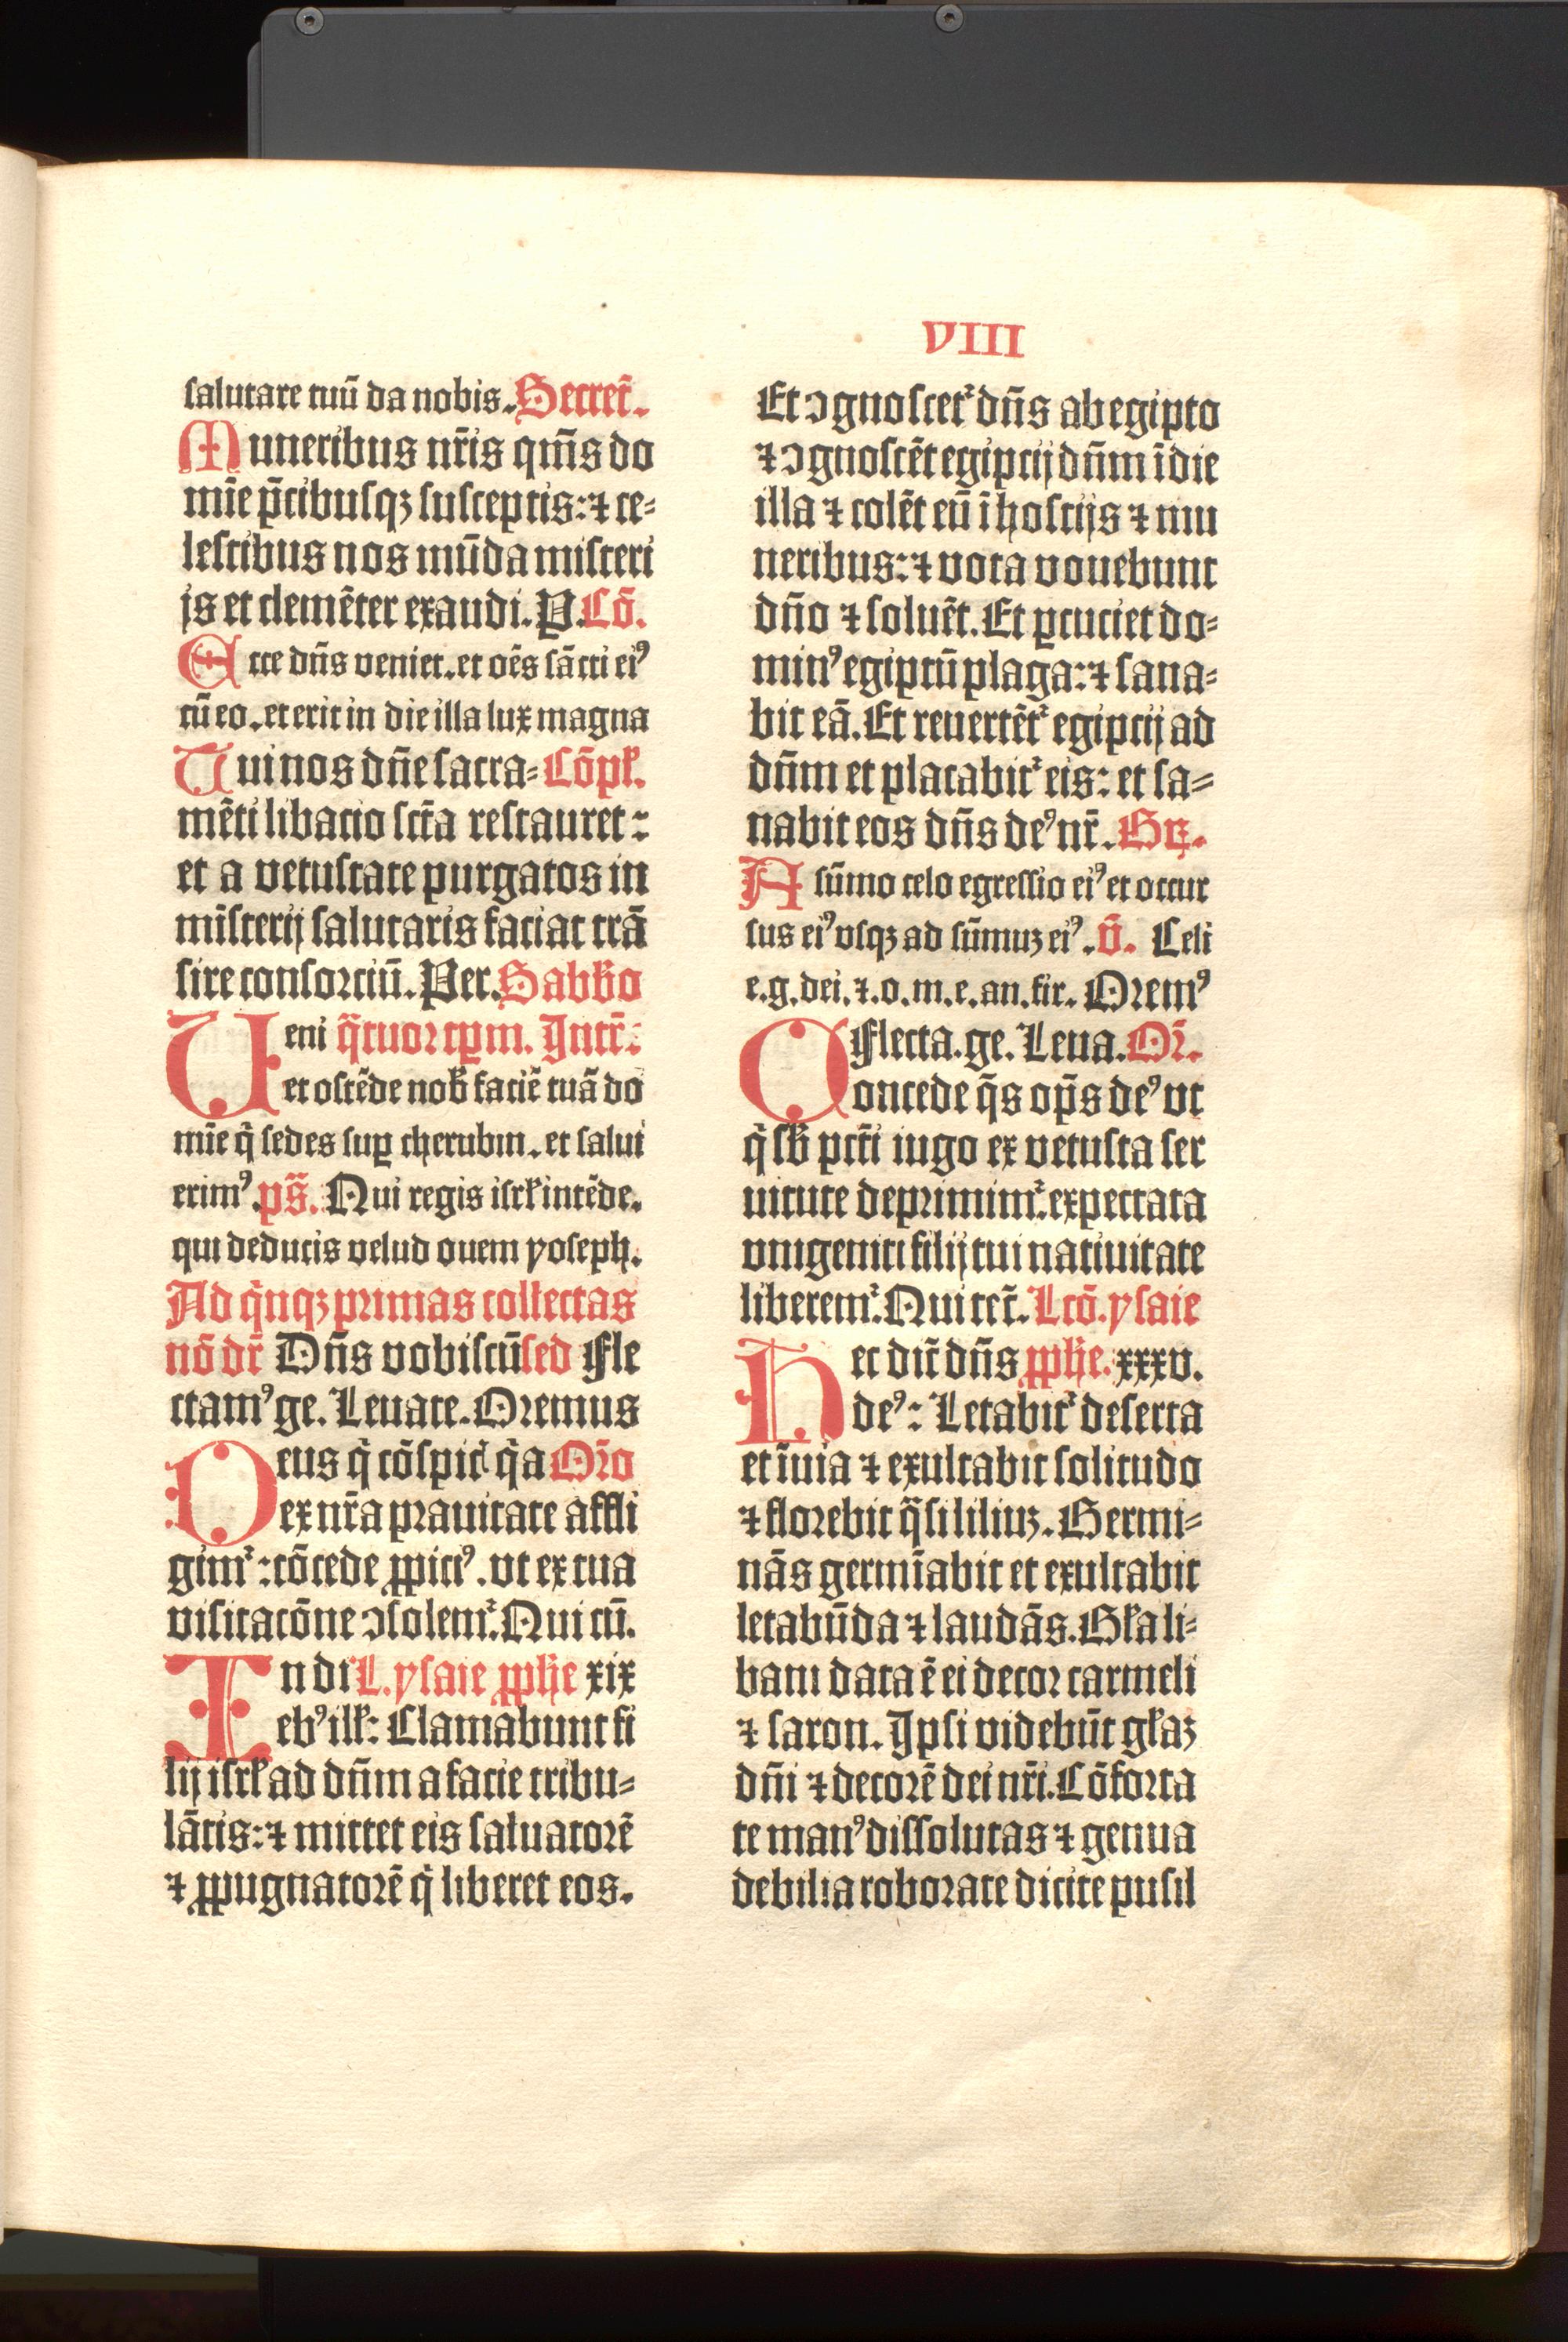 VIII
salutare tuū da nobis. Secret̄.
Muneribus nr̄is qm̄s do
mīe p̄cibusqz susceptis: ⁊ ce⸗
lestibus nos mūda misteri
js et clemēter exaudi. P. Cō.
Ecce dn̄s veniet. et oēs sācti eiꝰ
cū eo. et erit in die illa lux magna
Tui nos dn̄e sacra⸗ Cōpł.
mēti libacio sct̄a restauret:
et a vetustate purgatos in
mīsterij salutaris faciat trā
sire consorciū. Per. Sabb̄o
Ueni q̄tuortꝑm. Intr̄:
et ostēde nob̄ faciē tuā do
mīe q̄ sedes suꝑ cherubin. et salui
erimꝰ. ps̄. Qui regis isrł intēde.
qui deducis velud ouem yoseph.
Ad q̄nqz primas collectas
nō dr̄ Dn̄s vobiscū sed Fle
ctamꝰ ge. Leuate. Oremus
Deus q̄ cōspic̄ q̄a Or̄o
ex nr̄a prauitate affli
gimᷣ: cōcede ꝓpiciꝰ. vt ex tua
visitacōne ↄsolemᷣ. Qui cū.
In di L. ysaie ꝓph̄e xix
ebꝰ ilł: Clamabunt fi
lij isrł ad dn̄m a facie tribu⸗
lātis: ⁊ mittet eis saluatorē
⁊ ꝓpugnatorē q̄ liberet eos.
Et ↄgnoscetᷣ dn̄s ab egipto
⁊ ↄgnoscēt egiptij dn̄m ī die
illa ⁊ colēt eū ī hostijs ⁊ mu
neribus: ⁊ vota vouebunt
dn̄o ⁊ soluēt. Et ꝑcuciet do⸗
minꝰ egiptū plaga: ⁊ sana⸗
bit eā. Et reuertētᷣ egiptij ad
dn̄m et placabitᷣ eis: et sa⸗
nabit eos dn̄s deꝰ nr̄. Gr̄.
A sūmo celo egressio eiꝰ et occur
sus eiꝰ vsqz ad sūmuz eiꝰ. v̄. Celi
e. g. dei. ⁊. o. m. e. an. fir. Oremꝰ
Flecta. ge. Leua. Or̄.
Concede q̄s op̄s deꝰ vt
q̄ sb̄ pct̄i iugo ex vetusta ser
uitute deprimimᷣ. expectata
vnigeniti filij tui natiuitate
liberemᷣ. Qui tet̄. Lcō. ysaie
Hec dic̄ dn̄s ꝓph̄e. xxxv.
deꝰ: Letabitᷣ deserta
et īuia ⁊ exultabit solitudo
⁊ florebit q̄si liliuz. Germi⸗
nās germīabit et exultabit
letabūda ⁊ laudās. Gła li⸗
bani data ē ei decor carmeli
⁊ saron. Ipsi videbūt głaz
dn̄i ⁊ decorē dei nr̄i. Cōforta
te manꝰ dissolutas ⁊ genua
debilia roborate dicite pusil